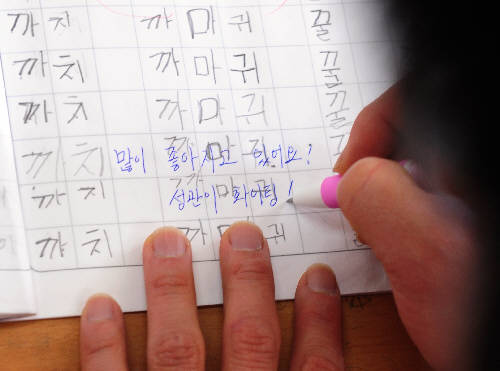 까 치 까 마 귀 꿀
까 치 까 마 귀 꿀
까 치 까 마 귀 꿀
까 치 까 마 귀
많이 좋아지고 있어요!
까 치 까 마 귀
성관이 화이팅!
까 치 까 마 귀